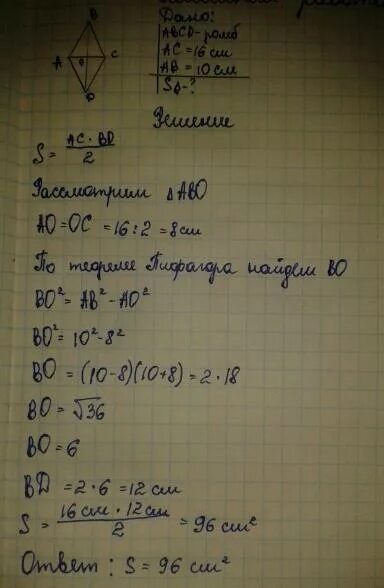 Дано:
ABCD-ромб
AC = 16 см
AB = 10 см
S◊-?
B
A O C
D
Решение
S = AC · BD / 2
Рассмотрим △ABO
AO = OC = 16 : 2 = 8 см
По теореме Пифагора найдем BO
BO² = AB² - AO²
BO² = 10² - 8²
BO = (10-8)(10+8) = 2 · 18
BO = √36
BO = 6
BD = 2 · 6 = 12 см
S = 16 см · 12 см / 2 = 96 см²
Ответ : S = 96 см²